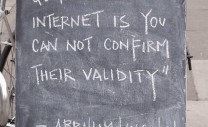 INTERNET IS YOU
CAN NOT CONFIRM
THEIR VALIDITY"